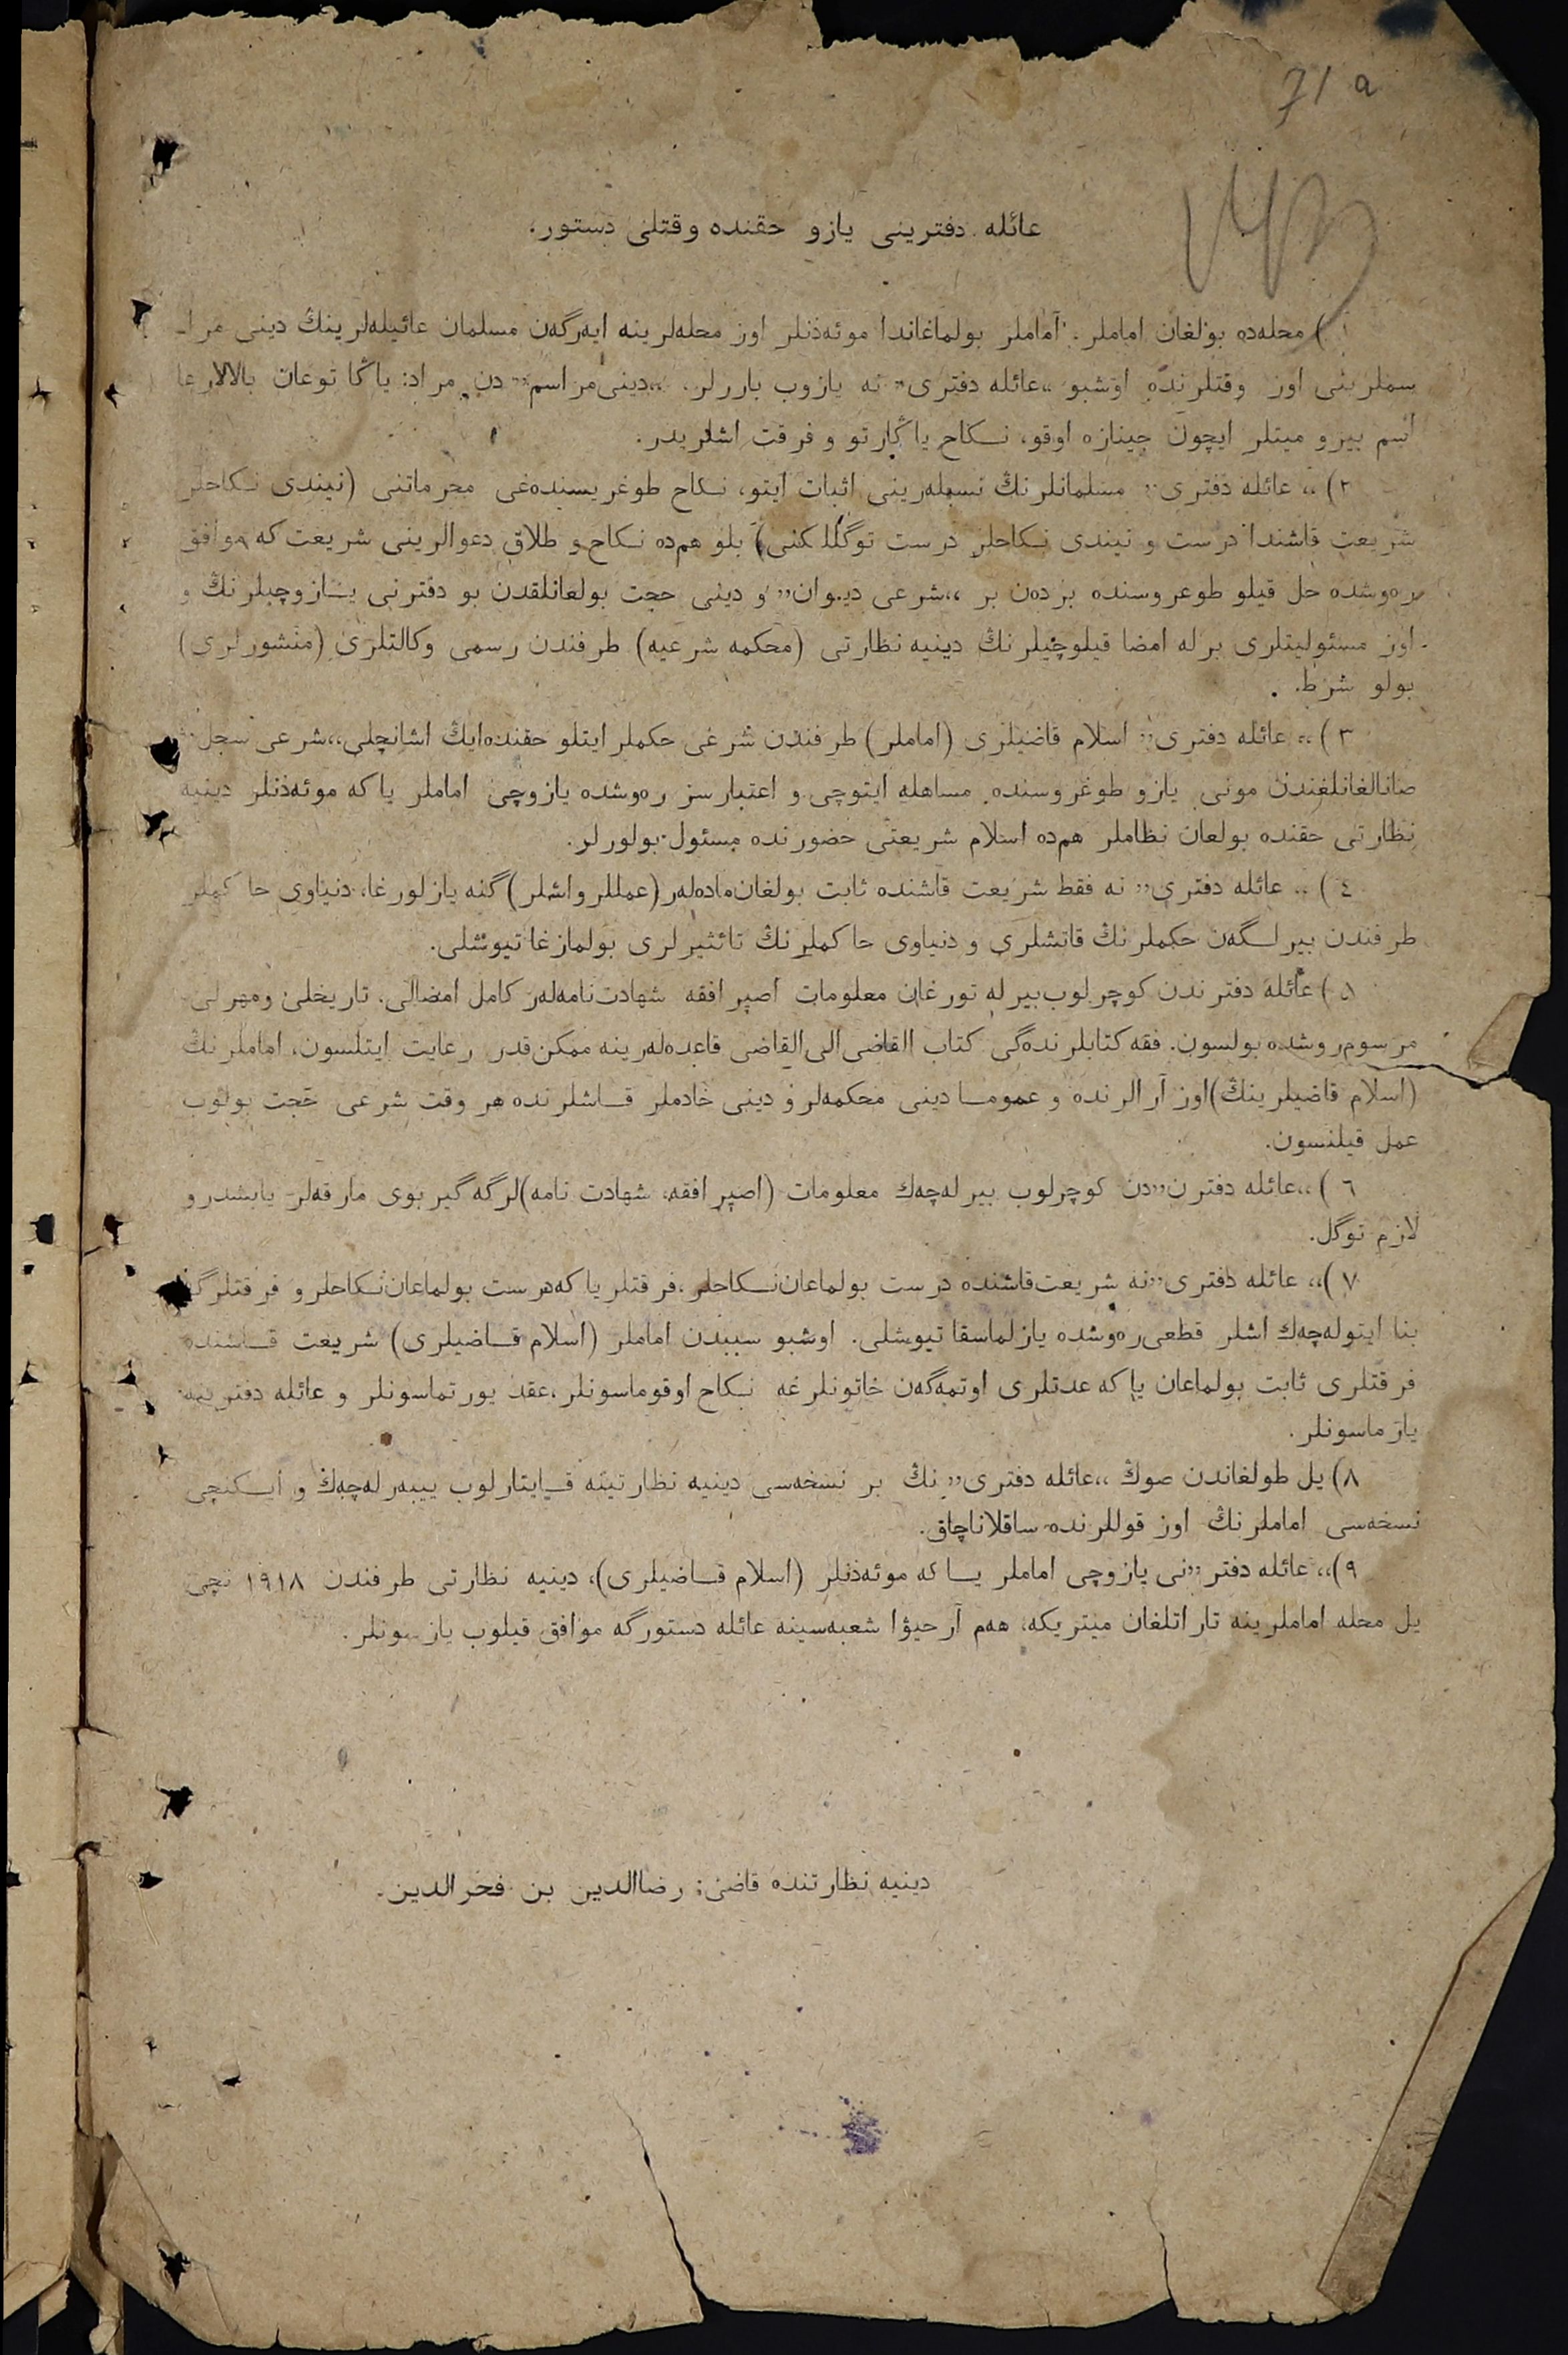 71 a
عائله دفترينى يازو حقنده وقتلى دستور.
١) محله‌ده بولغان اماملر، آماملر بولماغاندا موئه‌ذنلر اوز محله‌لرينه ايه‌رگه‌ن مسلمان عائيله‌لرينڭ دينى مرا‌ـ
سملرينى اوز وقتلرنده اوشبو „عائله دفترى” نه يازوب باررلر. „دينى مراسم” دن مراد: ياڭا توغان بالالارغا
اسم بيرو ميتلر ايچون جينازه اوقو، نـكاح ياڭارتو و فرقت اشلريدر.
٢) „ عائله دفترى” مسلمانلرنڭ نسبله‌رينى اثبات ايتو، نـكاح طوغريسنده‌غى محرماتنى (نيندى نـكاحلر
شريعت قاشندا درست و نيندى نـكاحلر درست توگللكنى) بلو هم‌ده نـكاح و طلاق دعوالرينى شريعت كه موافق
ره‌وشده حل قيلو طوعروسنده بردەن بر „شرعى ديوان” و دينى حجت بولعانلقدن بو دفترنى يـازوچيلرنڭ و
اوز مسئوليتلرى برله امضا قيلوچيلرنڭ دينيه نظارتى (محكمه شرعيه) طرفندن رسمى وكالتلرى (منشورلرى)
بولو شرط.
٣) „ عائله دفترى” اسلام قاضيلرى (اماملر) طرفندن شرعى حكملر ايتلو حقنده‌ايڭ اشانچلى„شرعى سجل”
صانالغانلغندن مونى يازو طوغروسنده مساهله ايتوچى و اعتبارسز ره‌وشده يازوچى اماملر ياكه موئه‌ذنلر دينيه
نظارتى حقنده بولعان نظاملر هم‌ده اسلام شريعتى حضورنده مسئول بولورلر.
٤) „ عائله دفترى” نه فقط شريعت قاشنده ثابت بولغان‌ماده‌له‌ر(عمللرواشلر)گنه يازلورغا، دنياوى حاكملر
طرفندن بيرلـگه‌ن حكملرنڭ قاتشلرى و دنياوى حاكملرنڭ تائثيرلرى بولمازغا تيوشلى.
٥) عائله دفترندن كوچرلوب‌بيرله تورغان معلومات اصپرافقه شهادت‌نامه‌له‌ر كامل امضالى، تاريخلى ومهرلى
مرسوم‌روشده بولسون. فقه كتابلرنده‌گى كتاب القاضى‌الى‌القاضى قاعده‌له‌رينه ممكن‌قدر رعايت ايتلسون، اماملرنڭ
(اسلام قاضيلرينڭ)اوز آرالرنده و عمومـا دينى محكمه‌لر و دينى خادملر قـاشلرنده هر وقت شرعى حجت بولوب
عمل قيلنسون.
٦) „عائله دفترن”دن كوچرلوب بيرله‌چه‌ك معلومات (اصپرافقه، شهادت نامه)لرگه گيربوى مارقه‌لر يابشدرو
لازم توگل.
٧)„ عائله دفترى”نه شريعت‌قاشنده درست بولماعان‌نـكاحلر،فرقتلر ياكه‌درست بولماعان‌نـكاحلرو فرقتلرگه
بنا ايتوله‌چه‌ك اشلر قطعى‌ره‌وشده يازلماسقا تيوشلى. اوشبو سببدن اماملر (اسلام قـاضيلرى) شريعت قـاشنده
فرقتلرى ثابت بولماعان ياكه عدتلرى اوتمه‌گه‌ن خاتونلرغه نـكاح اوقوماسونلر،عقد يورتماسونلر و عائله دفترينه
يازماسونلر.
٨) يل طولغاندن صوڭ „عائله دفترى” نڭ بر نسخه‌سى دينيه نظارتينه قـايتارلوب ييبه‌رله‌چه‌ك و ايـكنچى
نسخه‌سى اماملرنڭ اوز قوللرنده ساقلاناچاق.
٩)„ عائله دفتر”نى يازوچى اماملر يـا كه موئه‌ذنلر (اسلام قـاضيلرى)، دينيه نظارتى طرفندن ١٩١٨ نچى
يل محله اماملرينه تاراتلغان ميتريكه، هه‌م آرحيۋا شعبه‌سينه عائله دستورگه موافق قيلوب يازسونلر.
دينيه نظارتنده قاضى: رضاالدين بن فخرالدين.